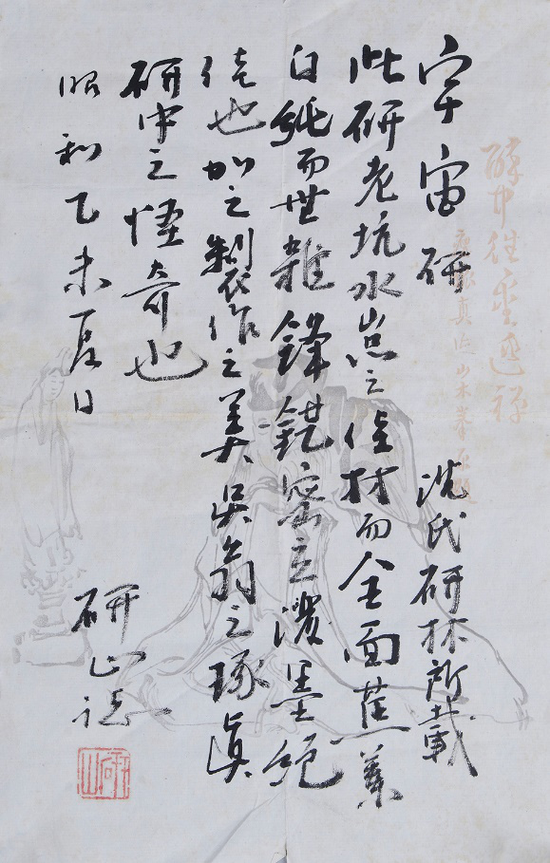 宇宙研　沈氏研林所載
此研老坑水岩之佳材而全面蕉葉
白純而無雜鋒鋩密立潑墨絕
佳也加之製作之美吳翁之琢真
研中之怪奇也
昭和乙未夏日
研山誌
研山